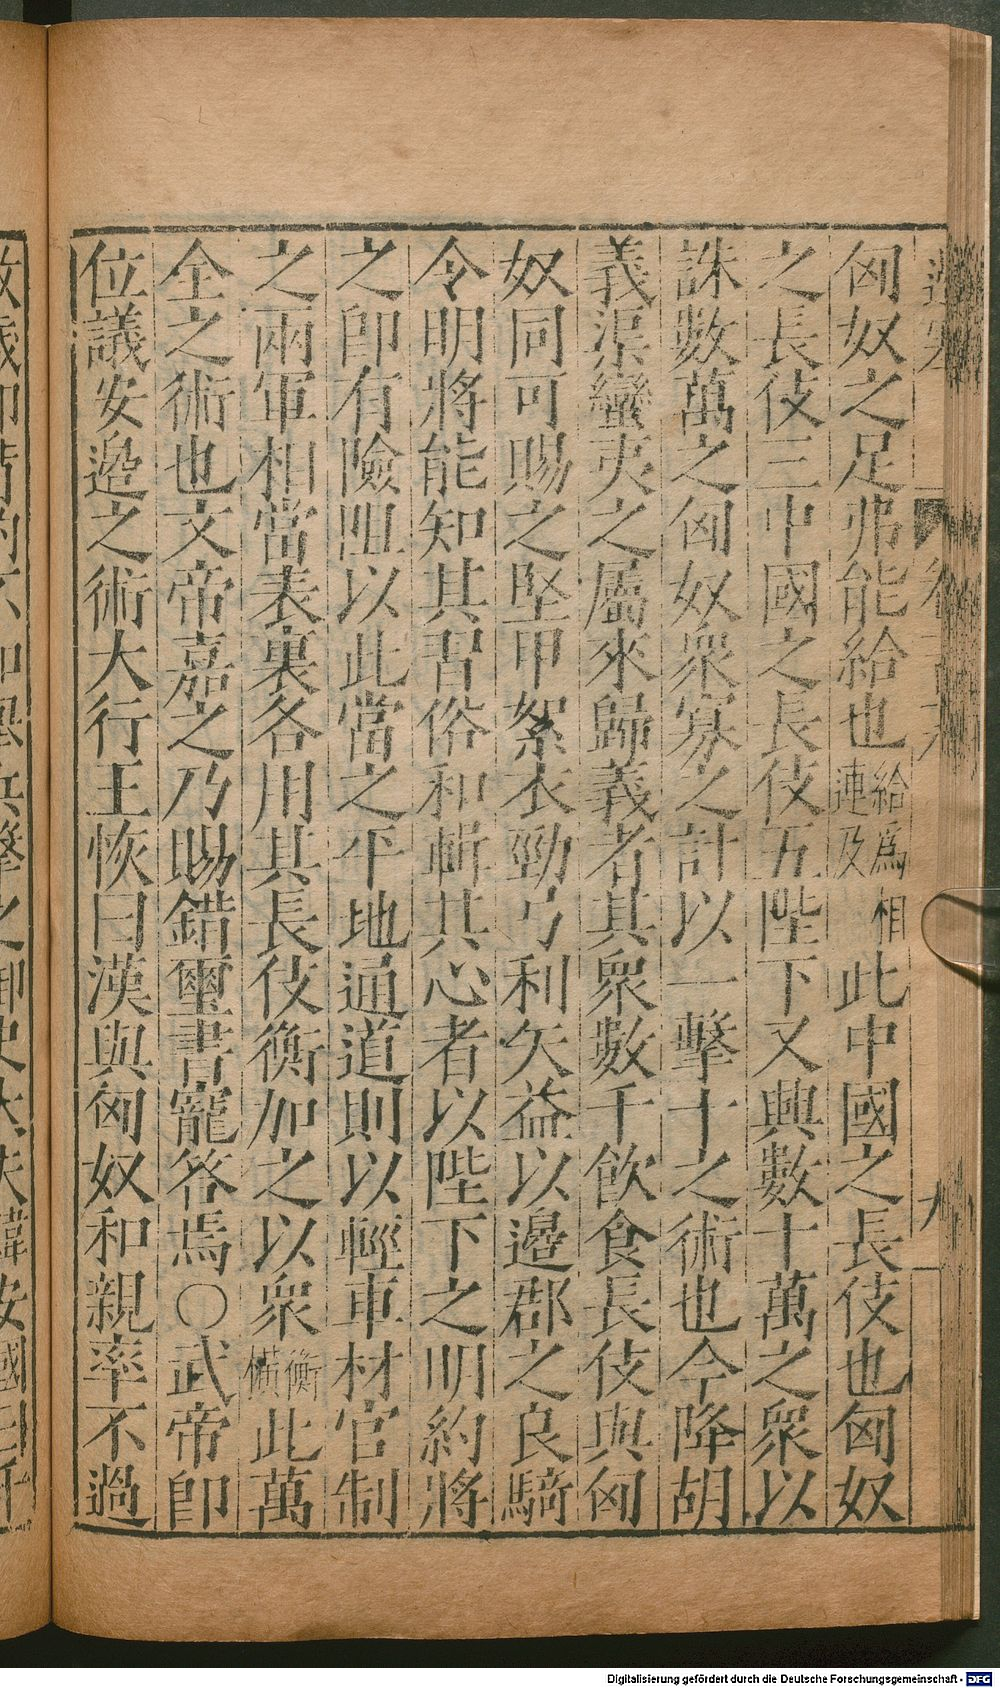 匈奴之足弗能給也給爲相連及此中國之長伎也匈奴
之長伎三中國之長伎五陛下又興數十萬之衆以
誅數萬之匈奴衆寡之計以一擊十之術也今降胡
義渠蠻夷之屬來歸義者其衆數千飲食長伎與匈
奴同可賜之堅甲絮衣勁弓利矢益以邊郡之良騎
令明將能知其習俗和輯其心者以陛下之明約將
之卽有險阻以此當之平地通道則以輕車材官制
之兩軍相當表裏各用其長伎衡加之以衆衡橫此萬
全之術也文帝嘉之乃賜錯璽書寵答焉○武帝卽
位議安邊之術大行王恢曰漢與匈奴和親率不過
Digitalisierung gefördert durch die Deutsche Forschungsgemeinschaft - DFG